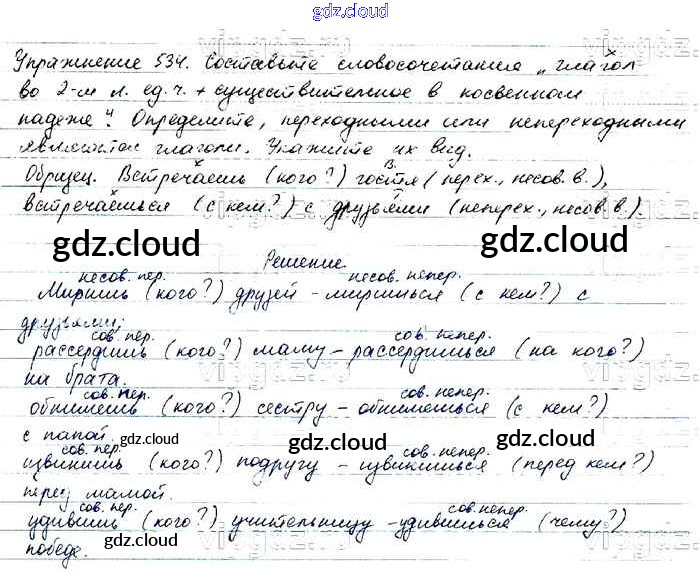 gdz.cloud
Упражнение 534. Составьте словосочетания „глагол
во 2-м л. ед. ч. + существительное в косвенном
падеже“. Определите, переходными или непереходными
являются глаголы. Укажите их вид.
Образец. Встречаешь (кого?) гостя (перех., несов. в.),
встречаешься (с кем?) с друзьями (неперех., несов. в.).
gdz.cloud gdz.cloud
Решение
несов. пер. несов. непер.
Миришь (кого?) друзей – миришься (с кем?) с
друзьями;
сов. пер. сов. непер.
рассердишь (кого?) маму – рассердишься (на кого?)
на брата.
сов. пер. сов. непер.
обнимешь (кого?) сестру – обнимешься (с кем?)
с папой.
gdz.cloud gdz.cloud gdz.cloud
сов. пер. сов. непер.
извинишь (кого?) подругу – извинишься (перед кем?)
перед мамой.
сов. пер. сов. непер.
удивишь (кого?) учительницу – удивишься (чему?)
победе.
gdz.cloud gdz.cloud